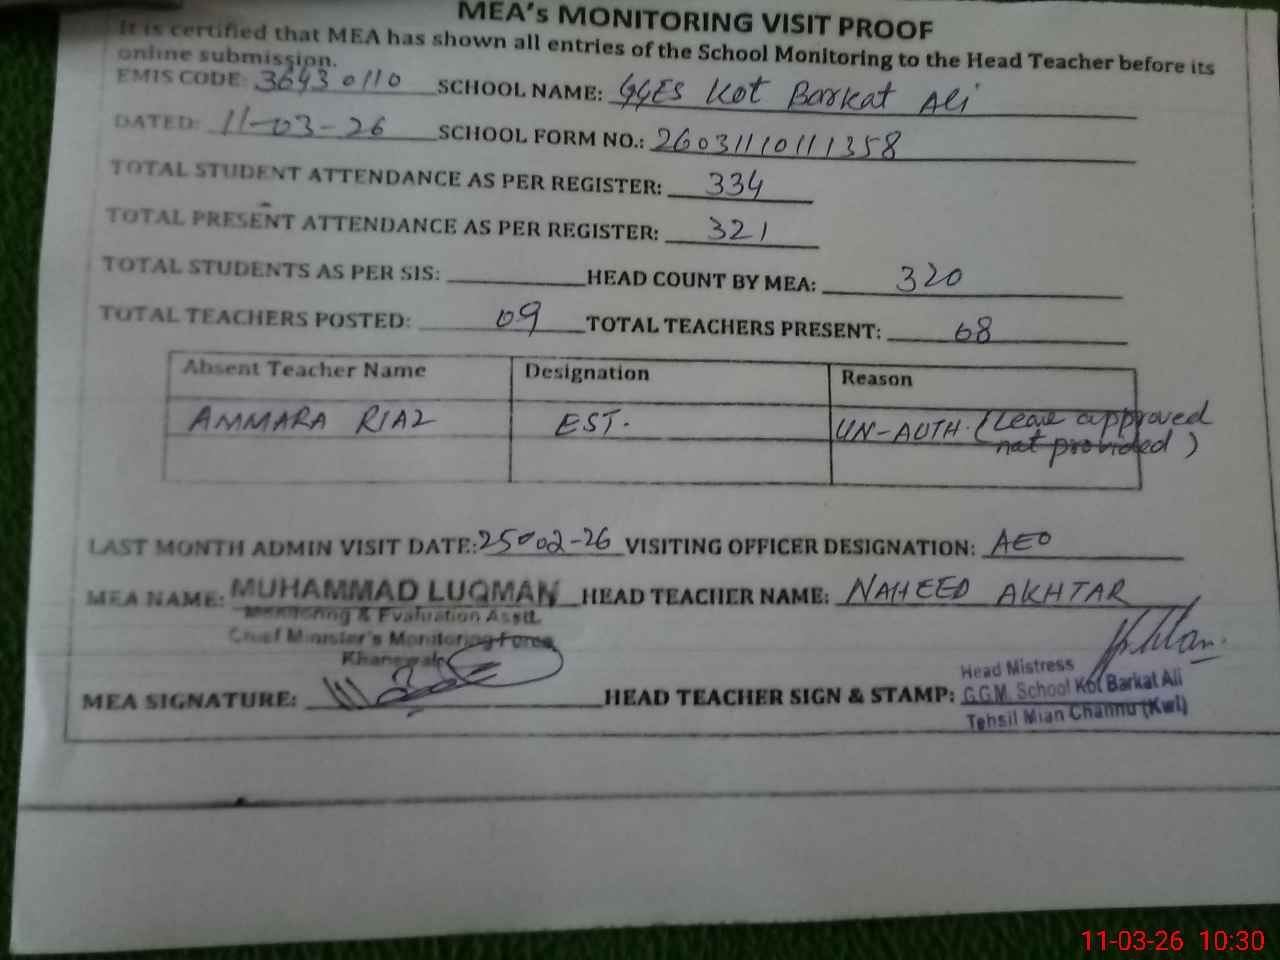 MEA's MONITORING VISIT PROOF
It is certified that MEA has shown all entries of the School Monitoring to the Head Teacher before its
online submission.
EMIS CODE: 36430110 SCHOOL NAME: GGES Kot Barkat Ali
DATED: 11-03-26 SCHOOL FORM NO.: 26031110111358
TOTAL STUDENT ATTENDANCE AS PER REGISTER: 334
TOTAL PRESENT ATTENDANCE AS PER REGISTER: 321
TOTAL STUDENTS AS PER SIS: HEAD COUNT BY MEA: 320
TOTAL TEACHERS POSTED: 09 TOTAL TEACHERS PRESENT: 08
Absent Teacher Name Designation Reason
AMMARA RIAZ EST. UN-AUTH. (Leave approved
not provided)
LAST MONTH ADMIN VISIT DATE: 25-02-26 VISITING OFFICER DESIGNATION: AEO
MEA NAME: MUHAMMAD LUQMAN HEAD TEACHER NAME: NAHEED AKHTAR
Monitoring & Evaluation Asstt.
Chief Minister's Monitoring Force
Khanewal
Head Mistress
MEA SIGNATURE: HEAD TEACHER SIGN & STAMP: G.G.M. School Kot Barkat Ali
Tehsil Mian Channu (Kwl)
11-03-26 10:30